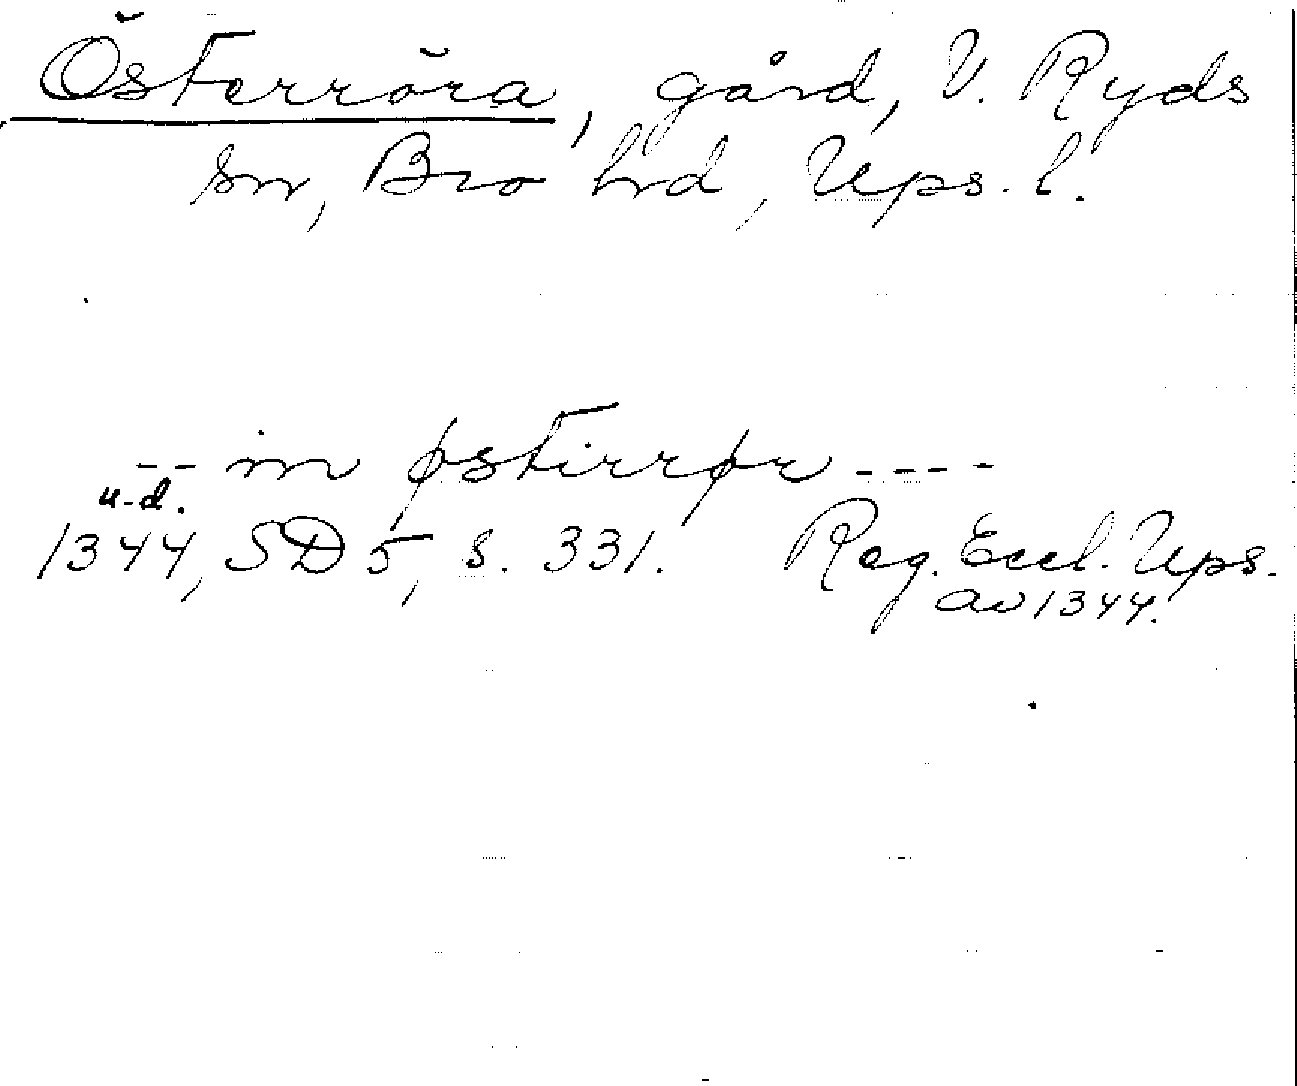 Österröra, gård, V. Ryds
sn, Bro hd, Ups. l.
-- in østirrør ----
u.d.
1344, SD 5, s. 331. Reg. Eccl. Ups.
av 1344.